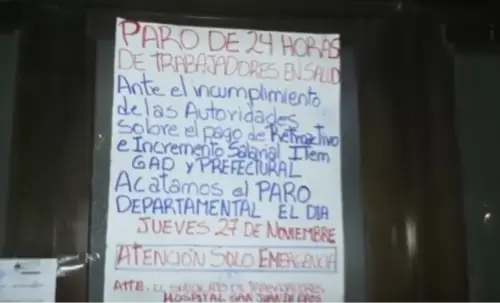 PARO DE 24 HORAS
DE TRABAJADORES EN SALUD
Ante el incumplimiento
de las Autoridades
sobre el pago de Retroactivo
e Incremento Salarial Item
GAD y PREFECTURAL
Acatamos el PARO
DEPARTAMENTAL EL DIA
JUEVES 27 DE NOVIEMBRE
ATENCIÓN SOLO EMERGENCIA
ATTE. EL SINDICATO DE TRABAJADORES
HOSPITAL SAN JUAN DE DIOS